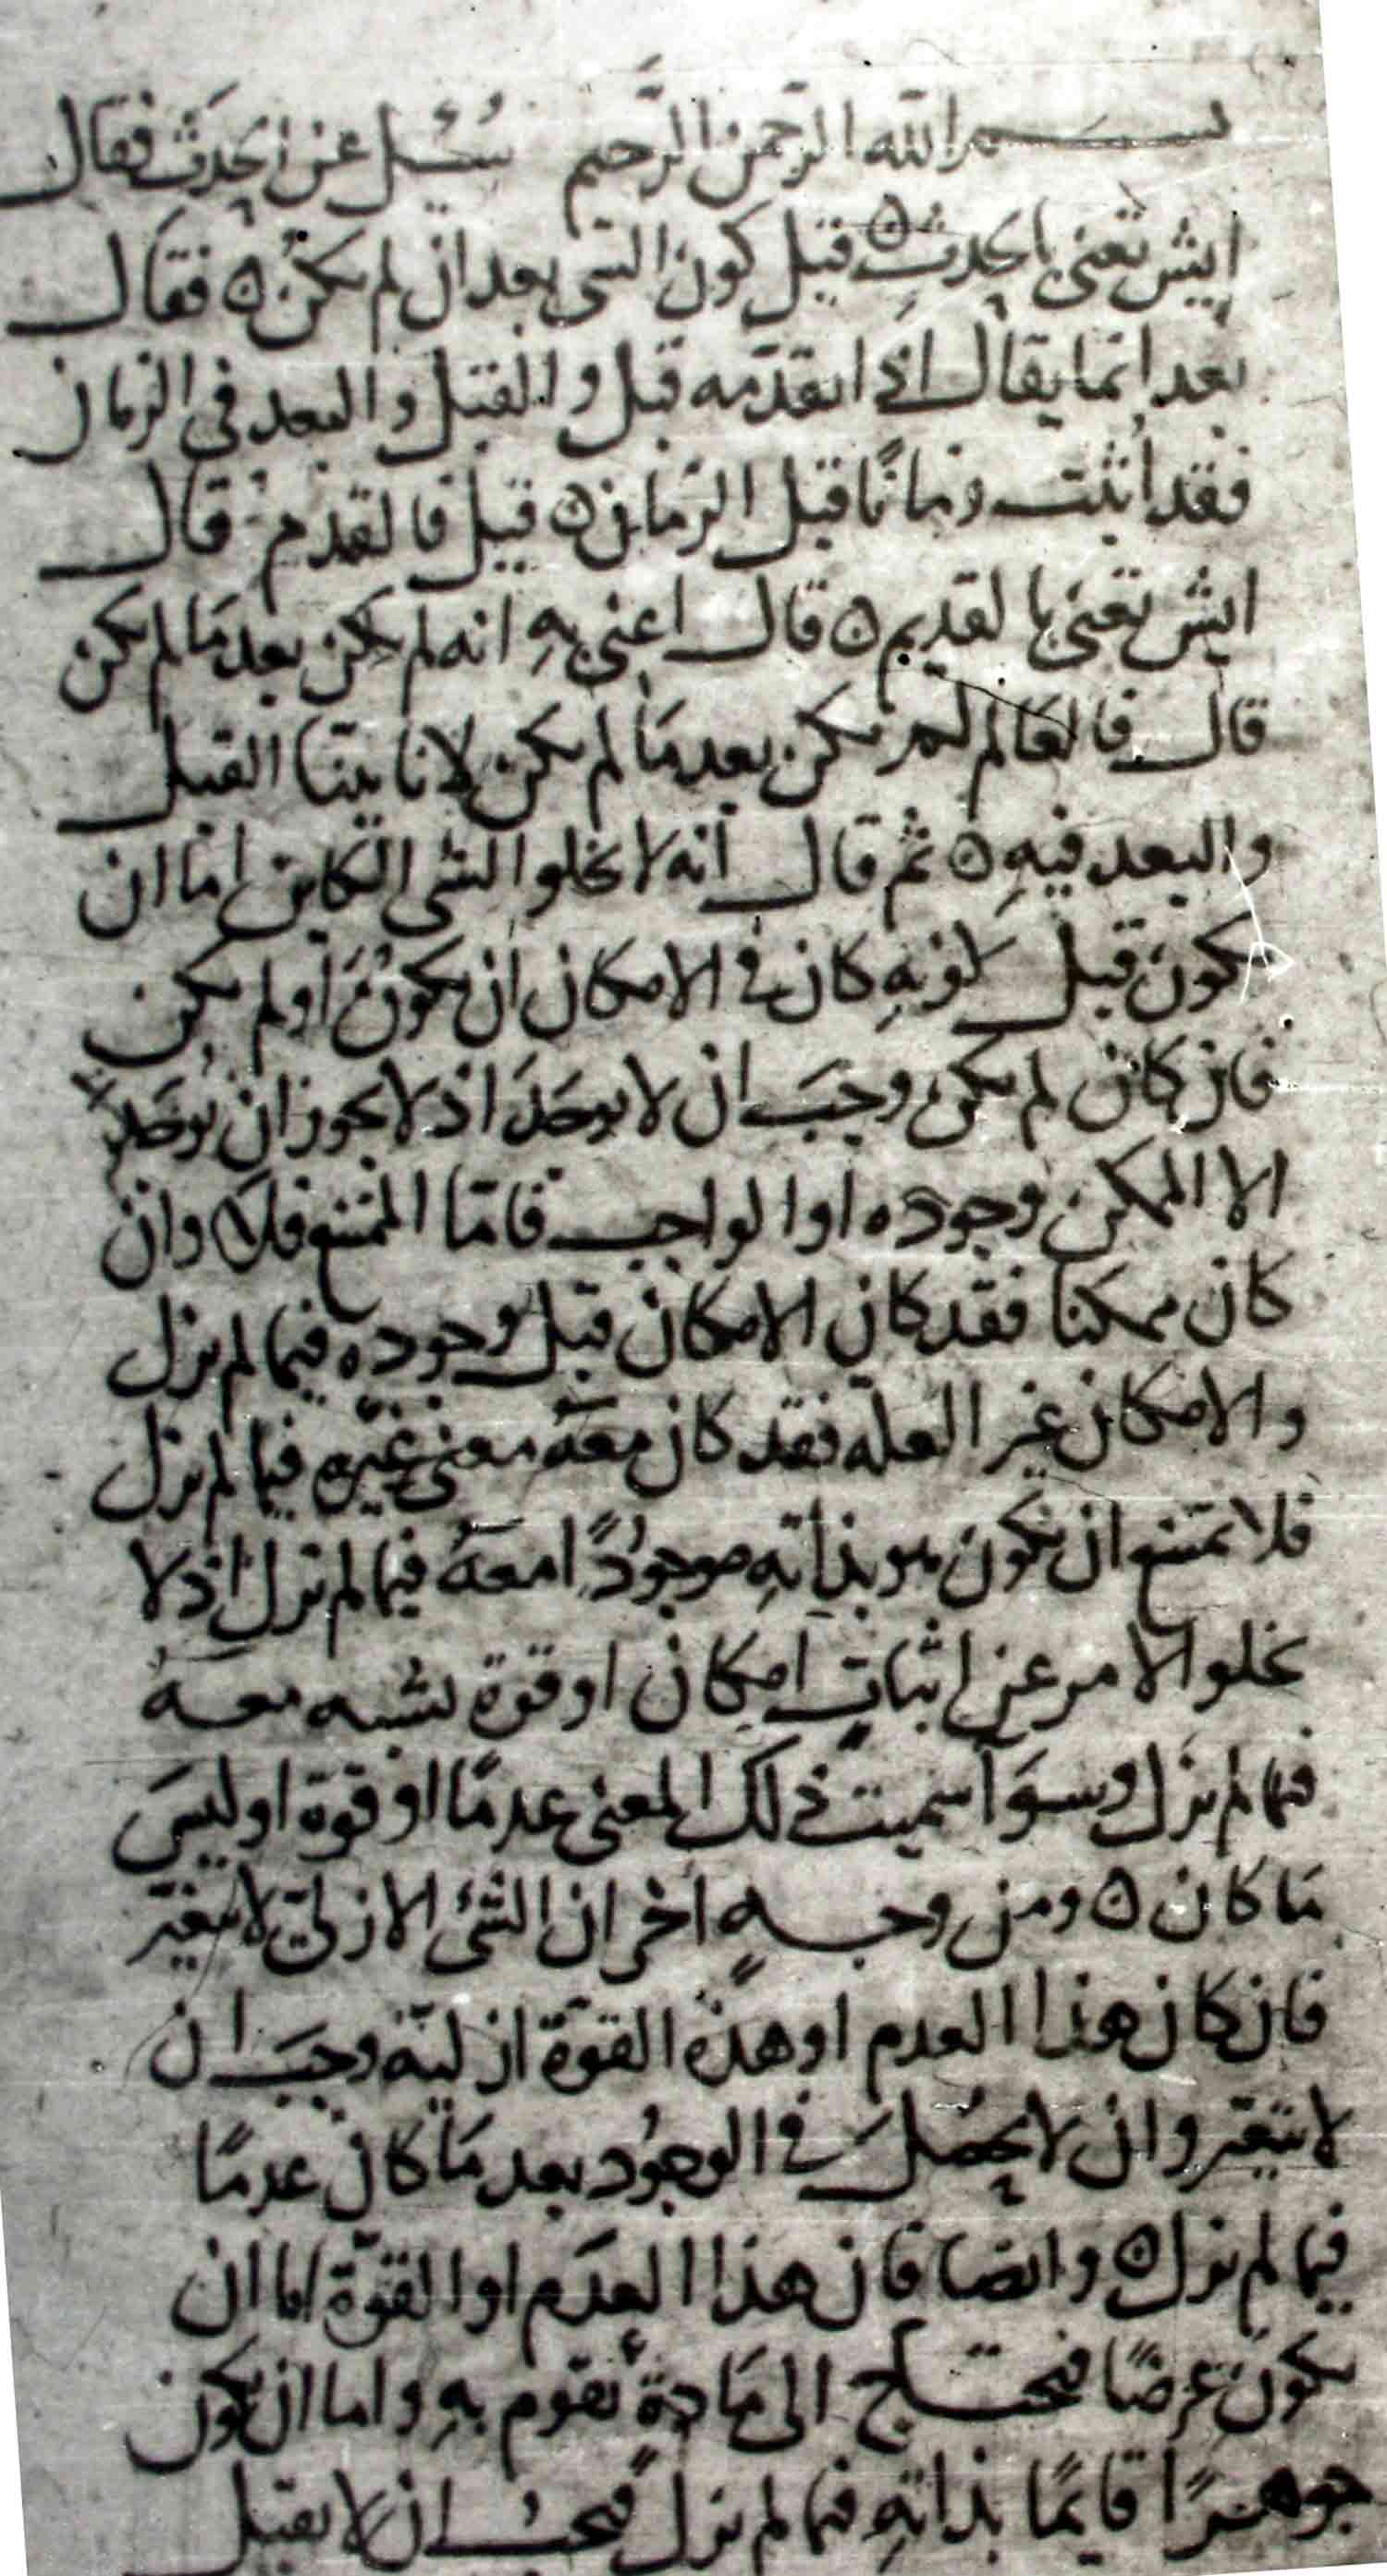 بسم الله الرحمن الرحيم سُئل عن الحدث فقال
ايش تعنى بالحدث ه قيل كون الشى بعد ان لم يكن ه فقال
بعد انما يقال اذا تقدمه قبل والقبل والبعد فى الزمان
فقد أثبت زمانًا قبل الزمان ه قيل فالقدم قال
ايش تعنى بالقديم ه قال اعنى بهِ انه لم يكن بعد ما لم يكن
قال فالعالم لم يكن بعد مَا لم يكن لانا بينا القبل
والبعد فيهِ ه ثم قال انه لا يخلوا الشى الكاين اما ان
يكون قبل كونهِ كان فى الامكان ان يكون أو لم يكن
فان كان لم يكن وجَبَ ان لا يوجَدَ اذ لا يجوز ان يوجَد
الا الممكن وجوده او الواجب فامّا الممتنع فلا ه وان
كان ممكنا فقد كان الامكان قبل وجوده فيما لم يزل
والامكان غير العلّه فقد كان معَهُ معنى غيره فيما لم يزل
فلا تمتنع ان يكون هو بذاتهِ موجودًا معَهُ فيما لم يزل اذ لا
يخلوا الامر عن اثباتِ امكان او قوة تشبه معه
فيما لم يزل وسوآ سميت ذلك المعنى عدمًا او قوة او ليسَ
مَا كان ه ومن وجهٍ اخر ان الشئ الازلىّ لا يتغير
فان كان هذا العدم او هذه القوة ازليّة وجَبَ ان
لا يتغير وان لا يحصل فى الوجُود بعد مَا كان عدمًا
فيما لم يزل ه وايضا فان هذا العدَم او القوّة اما ان
يكون عرضًا فيحتاج الى مَادةٍ تقوم بهِ واما ان يكون
جوهرًا قايمًا بذاتهِ فيما لم يزل فيجبُ ان لا يقبل